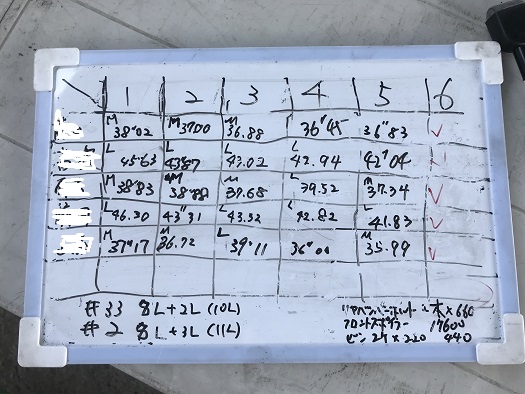 1 2 3 4 5 6
M 38"02 M 37.00 M 36.88 36"45 36"83 ✓
L 45.63 43"87 L 43.02 L 42.94 L 42"04
M 38"83 M 38"88 M 37.68 L 39.52 M 37.34 ✓
L 46.30 L 43"31 L 43.52 L 42.82 L 41.83 ✓
M 37"17 M 36.72 L 39.11 36"00 M 35.99 ✓
#33 8L+2L (10L)
#2 8L+3L (11L)
×660
フロントスポイラー 17600
ピン 2ケ×220 440